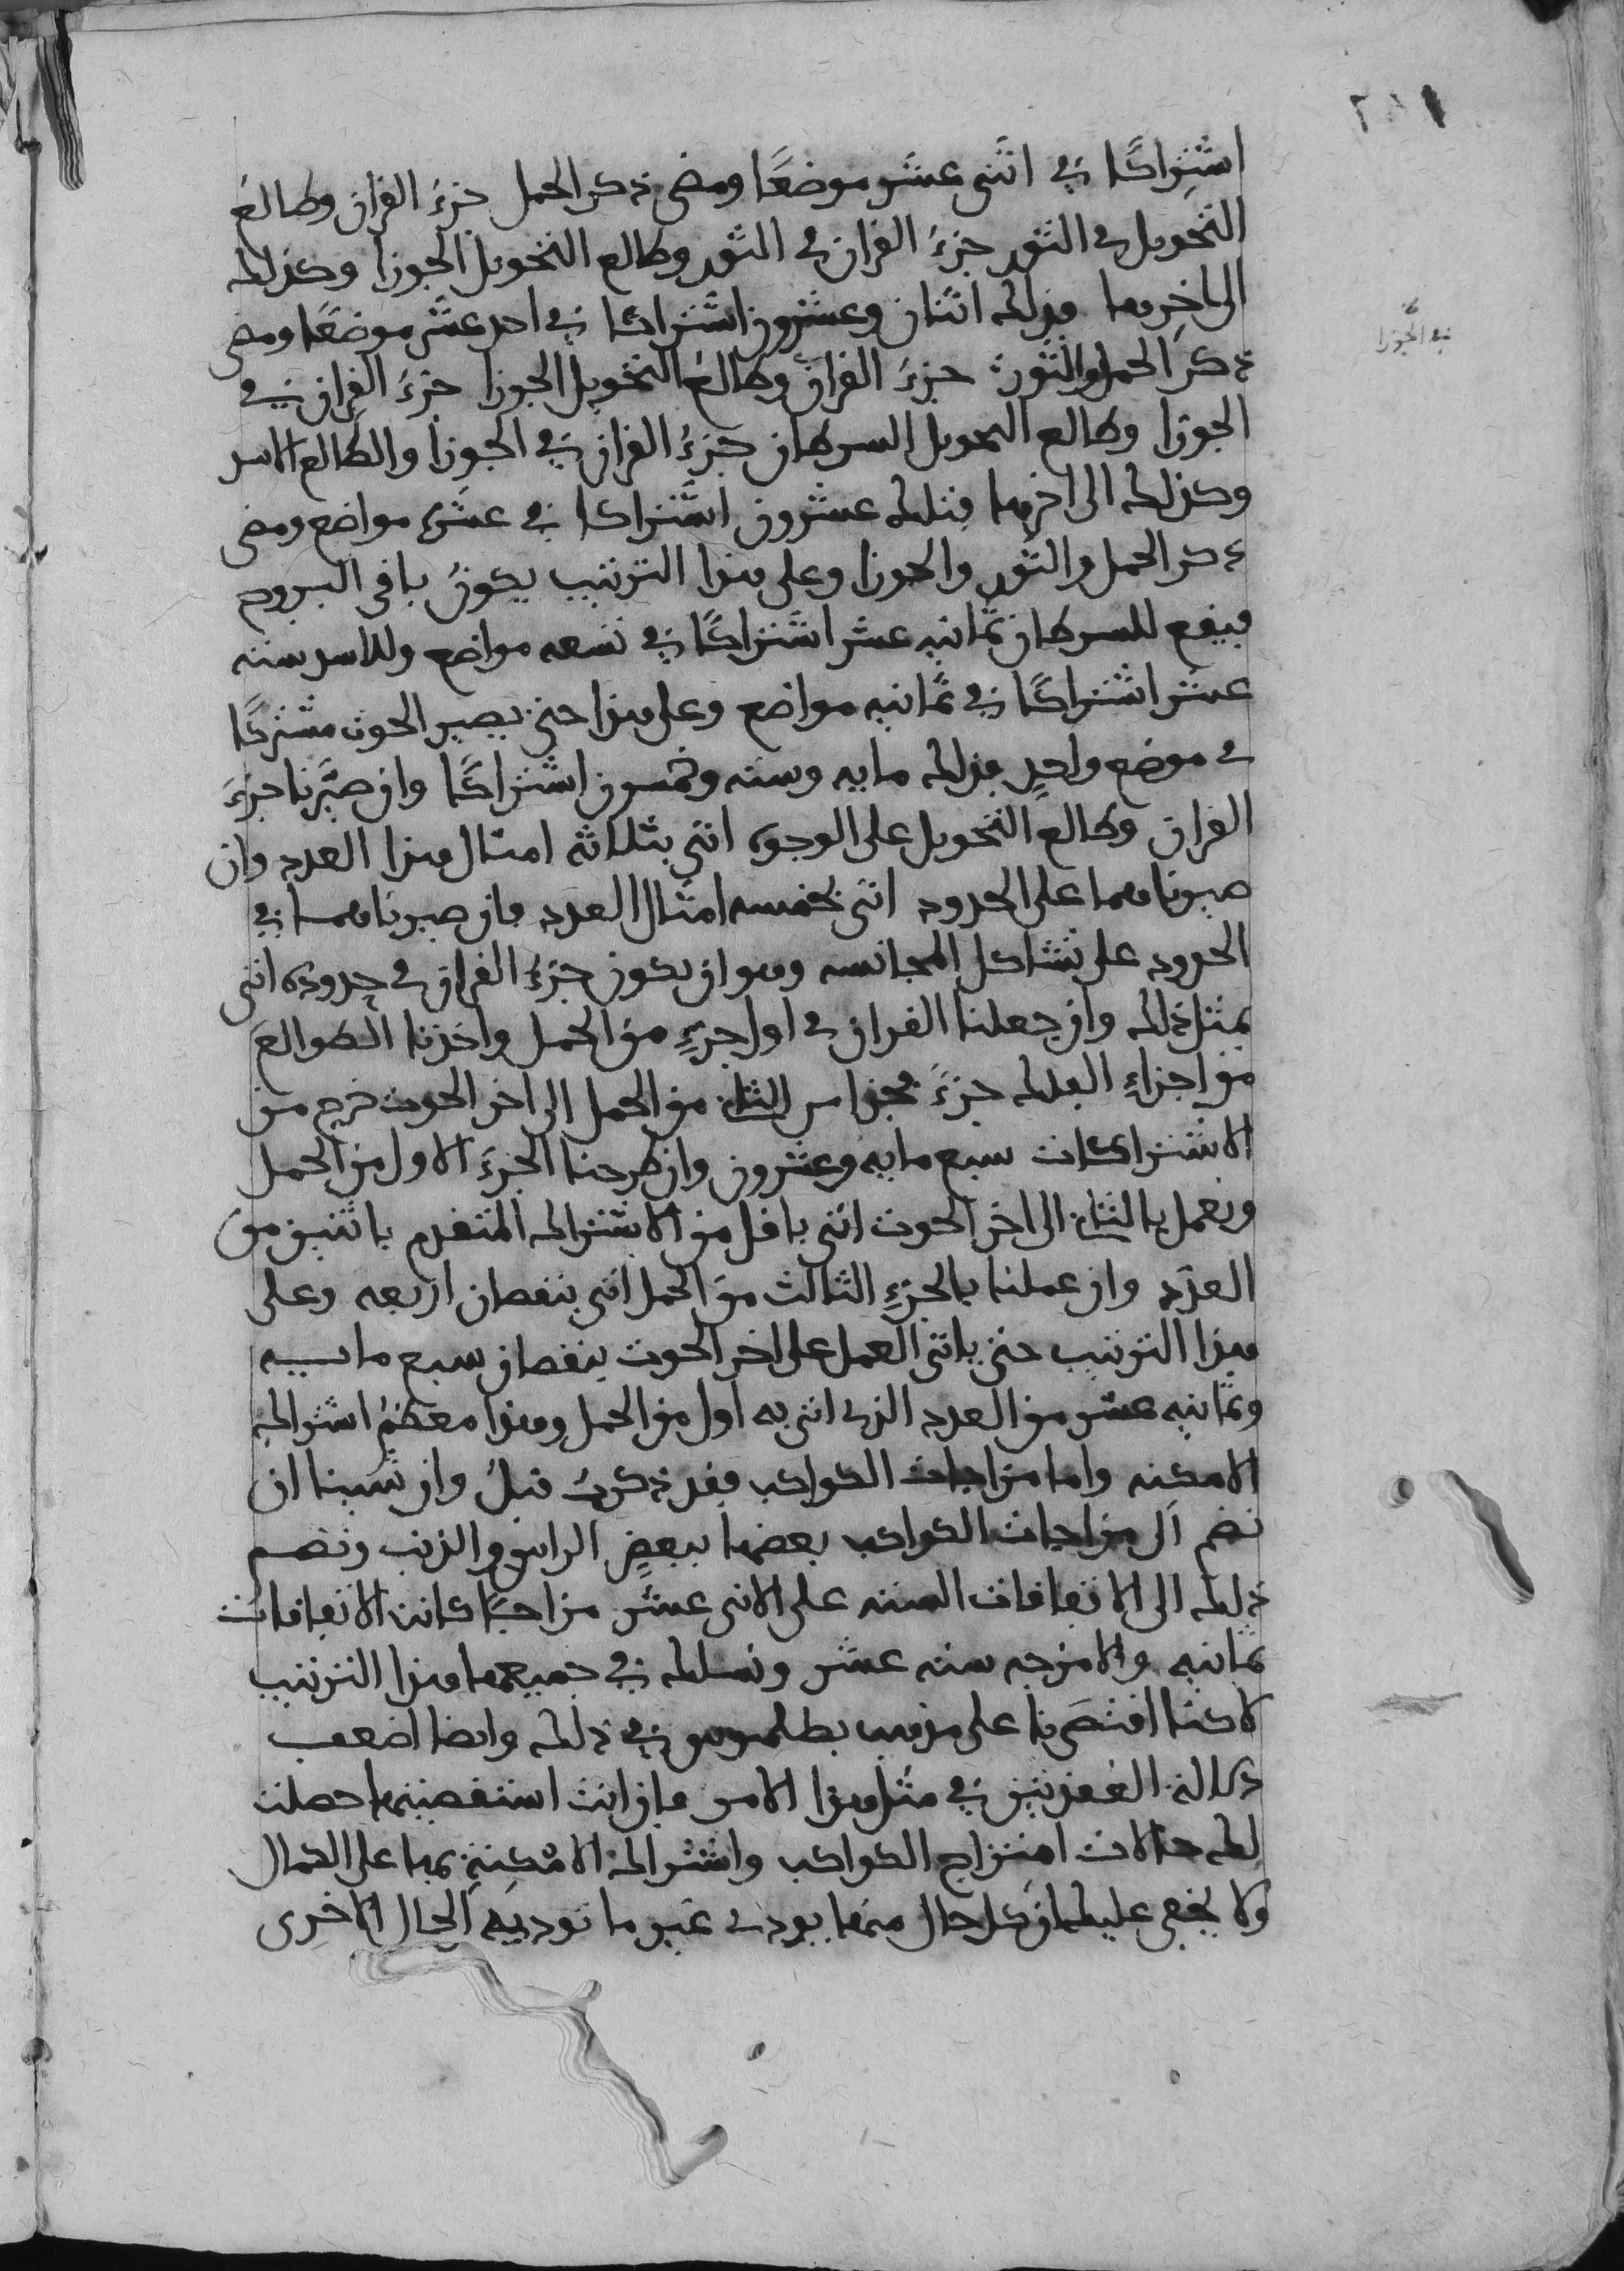 ٢٨١
اشتِراكًا في اثنى عشَر موضعًا ومضى ذكر الحمل جزءُ القران وطالعُ
التحويل في الثور جزءُ القران في الثور وطالع التحويل الجوزا وكذلك
الى اخِرها فذلك اثنان وعشرون اشتراكا في احد عشَر موضعًا ومضى
في الجوزا
ذكرَ الحمل والثور جزءُ القران وطالعُ التحويل الجوزا جزءُ القِران في
الجوزا وطالع التحويل السرطان جزءُ القران في الجوزا والطالع الاسد
وكذلك الى اخرها فتلك عشرون اشتراكا في عشَرة مواضع ومضى
ذكر الحمل والثور والجوزا وعلى هذا الترتيب يكونُ باقى البروج
فيقع للسرطان ثمانيه عشر اشتراكًا في تسعه مواضع وللاسد سته
عشر اشتراكًا في ثمانيه مواضع وعلى هذا حتى يصير الحوت مشتركًا
في موضع واحدٍ فذلك مايه وسته وخمسون اشتراكًا وان صيَّرنا جزءَ
القران وطالعَ التحويل على الوجوه اتى بثلاثه امثال هذا العدد وان
صيرناهما على الحدود اتى بخمسه امثال العدد فان صيرناهما في
الحدود على تشاكل المجانسه وهو ان يكون جزءُ القران في حدوده اتى
بمثل ذلك وان جعلنا القران في اول جزءٍ من الحمل واخذنا الطوالعَ
من اجزاءِ الفلك جزءً فجزا من الثاني من الحمل الى اخر الحوت خرج من
الاشتراكات سبع مايه وعشرون وان طرحنا الجزءَ الاول من الحمل
ونعمل بالثاني الى اخر الحوت اتى باقل من الاشتراك المتقدم باثنين من
العدد وان عملنا بالجزءِ الثالث من الحمل اتى بنقصان اربعه وعلى
هذا الترتيب حتى ياتى العمل على اخر الحوت بنقصان سبع مايه
وثمانيه عشر من العدد الذى اتى به اول من الحمل وهذا معظمُ اشتراك
الامكنه واما مزاجات الكواكب فقد ذكرت قبلُ وان شينا ان
نضم الى مزاجات الكواكب بعضها ببعضٍ الراس والذنب ونضم
ذلك الى الاتفاقات السته على الاثنى عشَر مزاجًا كانت الاتفاقات
ثمانيه والامزجه سته عشَر ونسلك في جميعها هذا الترتيب
لاكنا اقتصَرنا على مذهب بطلميوس في ذلك وايضا اضعف
دلاله العقدتين في مثل هذا الامر فان انت استقصيتها حصلت
لك حالات امتزاج الكواكب واشتراك الامكنةِ بها على الكمال
ولا يخفى عليك ان كل حال منها يودى غير ما توديه الحال الاخرى